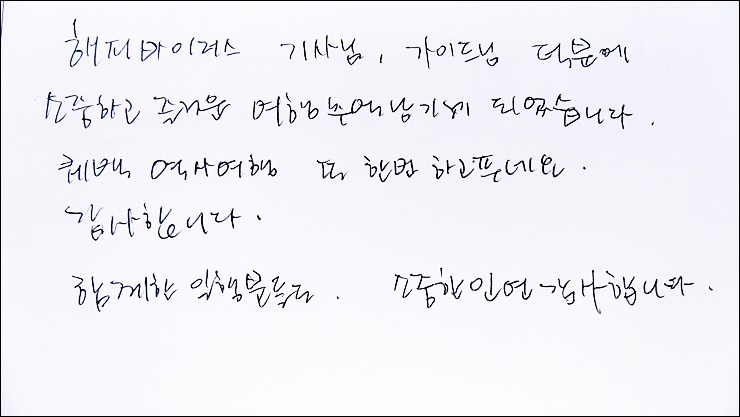 해피바이러스 기사님, 가이드님 덕분에
소중하고 즐거운 여행추억남기게 되었습니다.
퀘벡 역사여행 또 한번 하고푸네요.
감사합니다.
함께한 일행분들도. 소중한인연감사합니다.